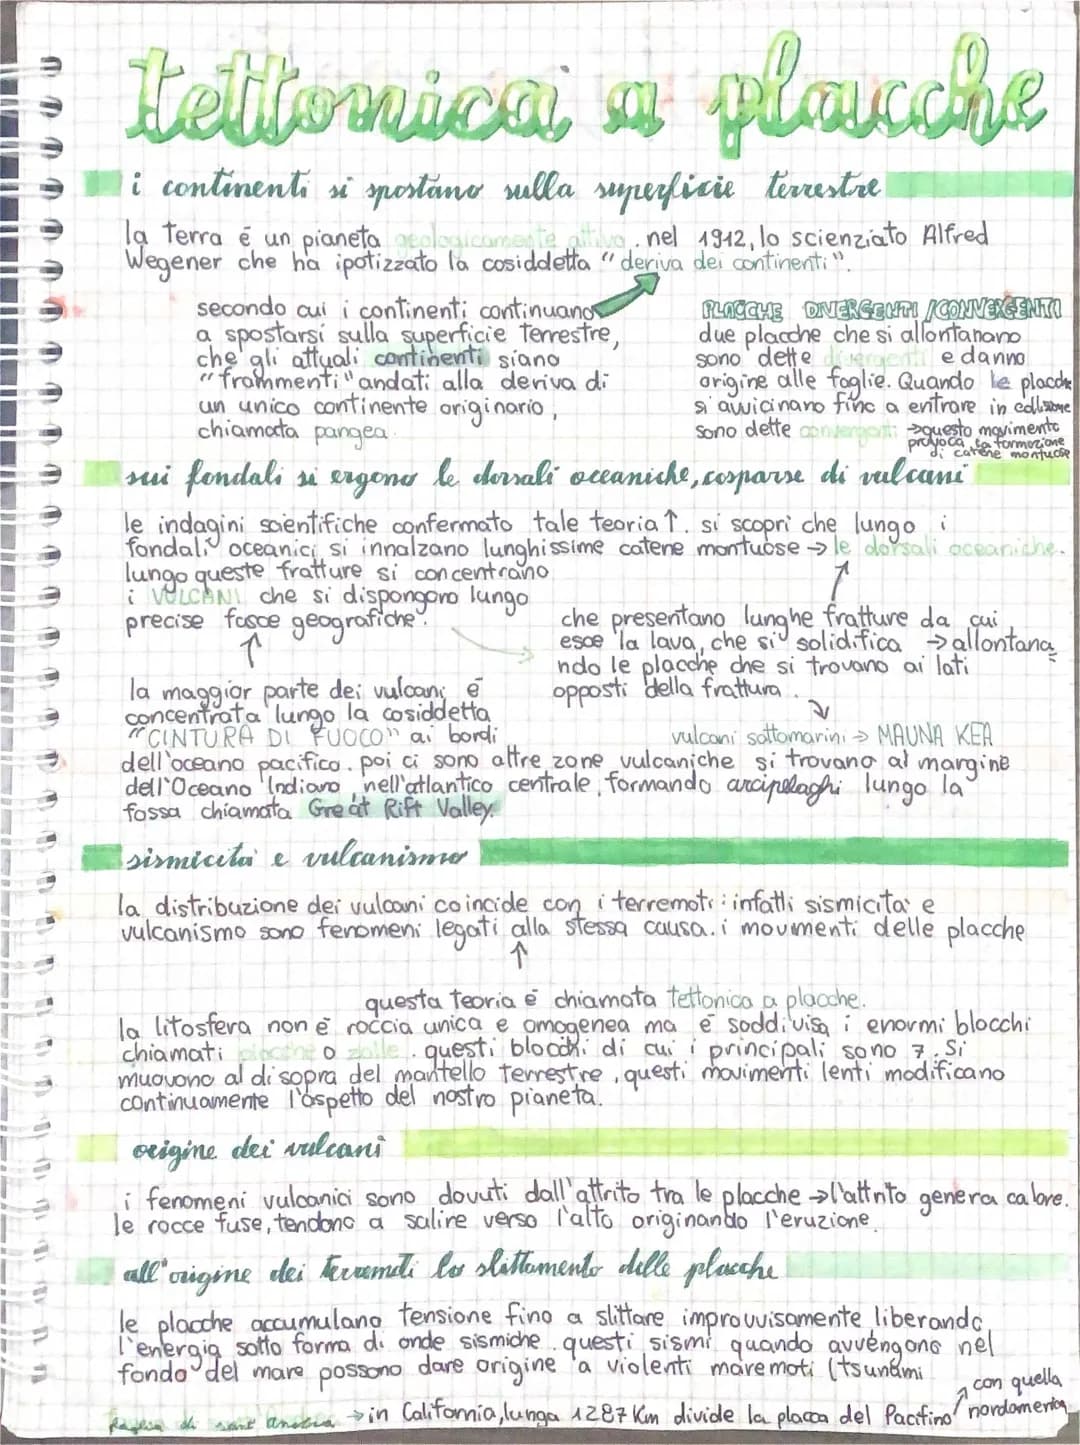 tettonica a placche
i continenti si spostano sulla superficie terrestre
la Terra è un pianeta geologicamente attivo. nel 1912, lo scienziato Alfred
Wegener che ha ipotizzato la cosiddetta "deriva dei continenti".
secondo cui i continenti continuano
a spostarsi sulla superficie terrestre,
che gli attuali continenti siano
"frammenti" andati alla deriva di
un unico continente originario,
chiamata pangea.
PLACCHE DIVERGENTI/CONVERGENTI
due placche che si allontanano
sono dette divergenti e danno
origine alle faglie. Quando le placche
si avvicinano fino a entrare in collisione
sono dette convergenti → questo movimento
provoca la formazione
di catene montuose
sui fondali si ergono le dorsali oceaniche, cosparse di vulcani
le indagini scientifiche confermato tale teoria ↑. si scoprì che lungo i
fondali oceanici si innalzano lunghissime catene montuose → le dorsali oceaniche.
lungo queste fratture si concentrano
i VULCANI che si dispongono lungo
precise fasce geografiche.
che presentano lunghe fratture da cui
esce la lava, che si solidifica → allontana
ndo le placche che si trovano ai lati
opposti della frattura.
la maggior parte dei vulcani è
concentrata lungo la cosiddetta
"CINTURA DI FUOCO" ai bordi
vulcani sottomarini → MAUNA KEA
dell'oceano pacifico. poi ci sono altre zone vulcaniche si trovano al margine
dell'Oceano Indiano, nell'atlantico centrale, formando arcipelaghi lungo la
fossa chiamata Great Rift Valley.
sismicità e vulcanismo
la distribuzione dei vulcani coincide con i terremoti: infatti sismicità e
vulcanismo sono fenomeni legati alla stessa causa. i movimenti delle placche
questa teoria è chiamata tettonica a placche.
la litosfera non è roccia unica e omogenea ma è soddivisa i enormi blocchi
chiamati placche o zolle. questi blocchi di cui i principali sono 7. Si
muovono al di sopra del mantello terrestre, questi movimenti lenti modificano
continuamente l'aspetto del nostro pianeta.
origine dei vulcani
i fenomeni vulcanici sono dovuti dall'attrito tra le placche → l'attrito genera calore.
le rocce fuse, tendono a salire verso l'alto originando l'eruzione.
all'origine dei terremoti lo slittamento delle placche
le placche accumulano tensione fino a slittare improvvisamente liberando
l'energia sotto forma di onde sismiche. questi sismi quando avvengono nel
fondo del mare possono dare origine a violenti maremoti (tsunami
con quella
faglia di sant'andrea → in California, lunga 1287 Km divide la placca del Pacifino nordamerica